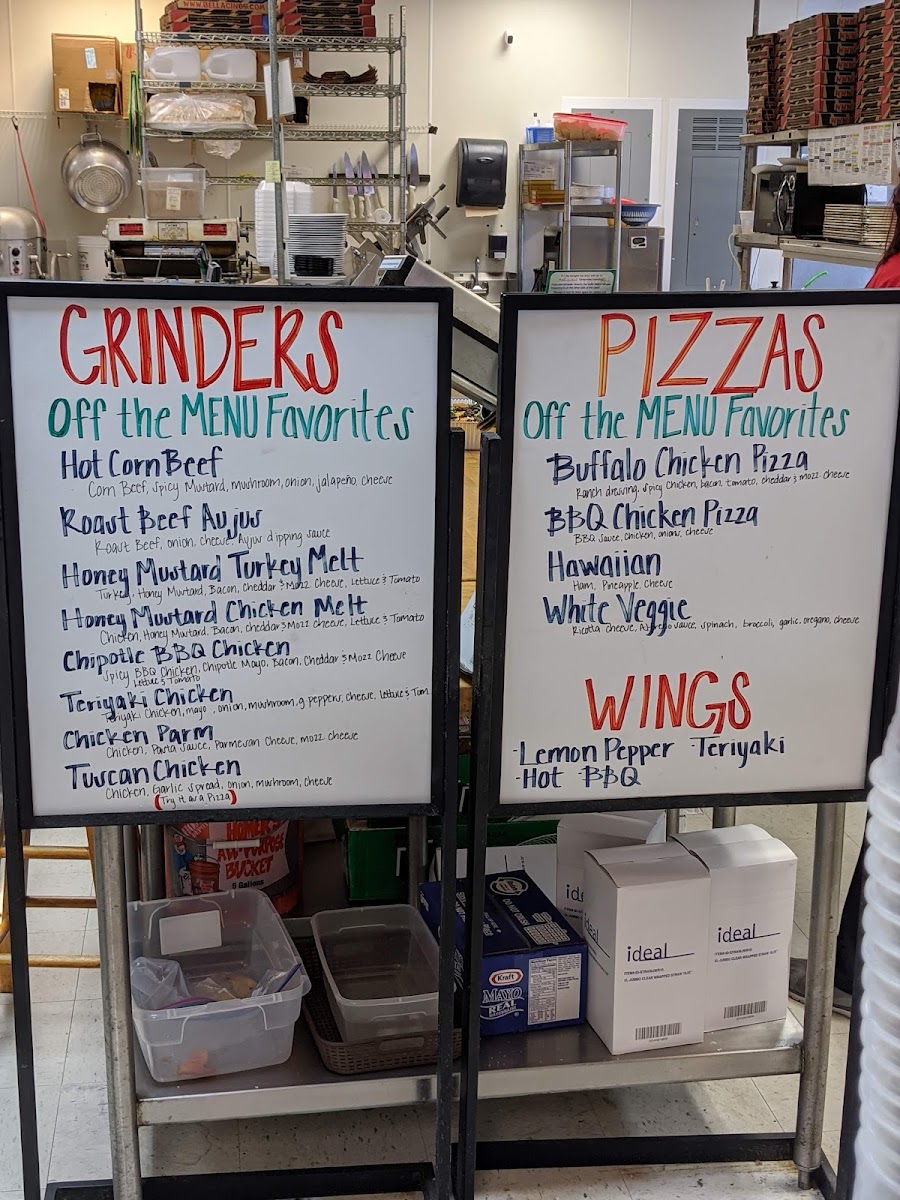 GRINDERS
Off the MENU Favorites
Hot Corn Beef
Corn Beef, Spicy Mustard, mushroom, onion, jalapeño, cheese
Roast Beef Aujus
Roast Beef, onion, cheese, Aujus dipping sauce
Honey Mustard Turkey Melt
Turkey, Honey Mustard, Bacon, cheddar & Mozz Cheese, Lettuce & Tomato
Honey Mustard Chicken Melt
Chicken, Honey Mustard, Bacon, cheddar & Mozz Cheese, Lettuce & Tomato
Chipotle BBQ Chicken
Spicy BBQ Chicken, Chipotle Mayo, Bacon, Cheddar & Mozz Cheese
Lettuce & Tomato
Teriyaki Chicken
Teriyaki Chicken, mayo, onion, mushroom, g peppers, cheese, lettuce & Tom
Chicken Parm
Chicken, Pasta sauce, Parmesan Cheese, mozz cheese
Tuscan Chicken
Chicken, Garlic spread, onion, mushroom, cheese
(Try it as a Pizza)
PIZZAS
Off the MENU Favorites
Buffalo Chicken Pizza
Ranch dressing, spicy chicken, bacon, tomato, cheddar & mozz cheese
BBQ Chicken Pizza
BBQ sauce, chicken, onions, cheese
Hawaiian
Ham, Pineapple, cheese
White Veggie
Ricotta cheese, Alfredo sauce, spinach, broccoli, garlic, oregano, cheese
WINGS
-Lemon Pepper -Teriyaki
-Hot BBQ
HOMER'S
ALL-PURPOSE
BUCKET
5 Gallons
Kraft
MAYO
REAL
ideal
ideal